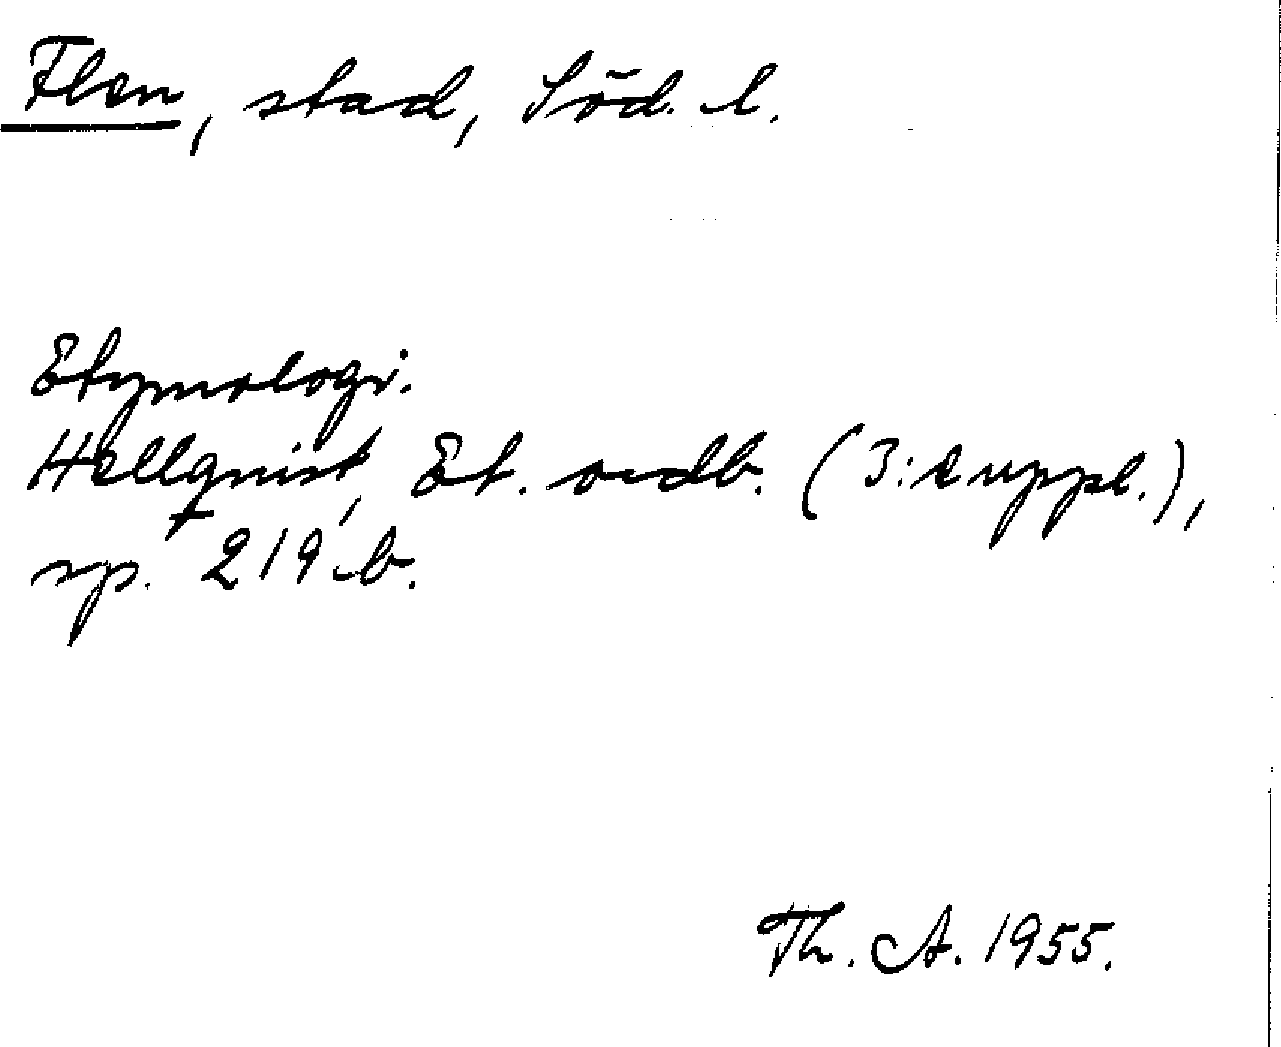 Flen, stad, Söd. l.
Etymologi.
Hellquist, Et. ordb. (3:e uppl.),
sp. 219 b.
Th. A. 1955.